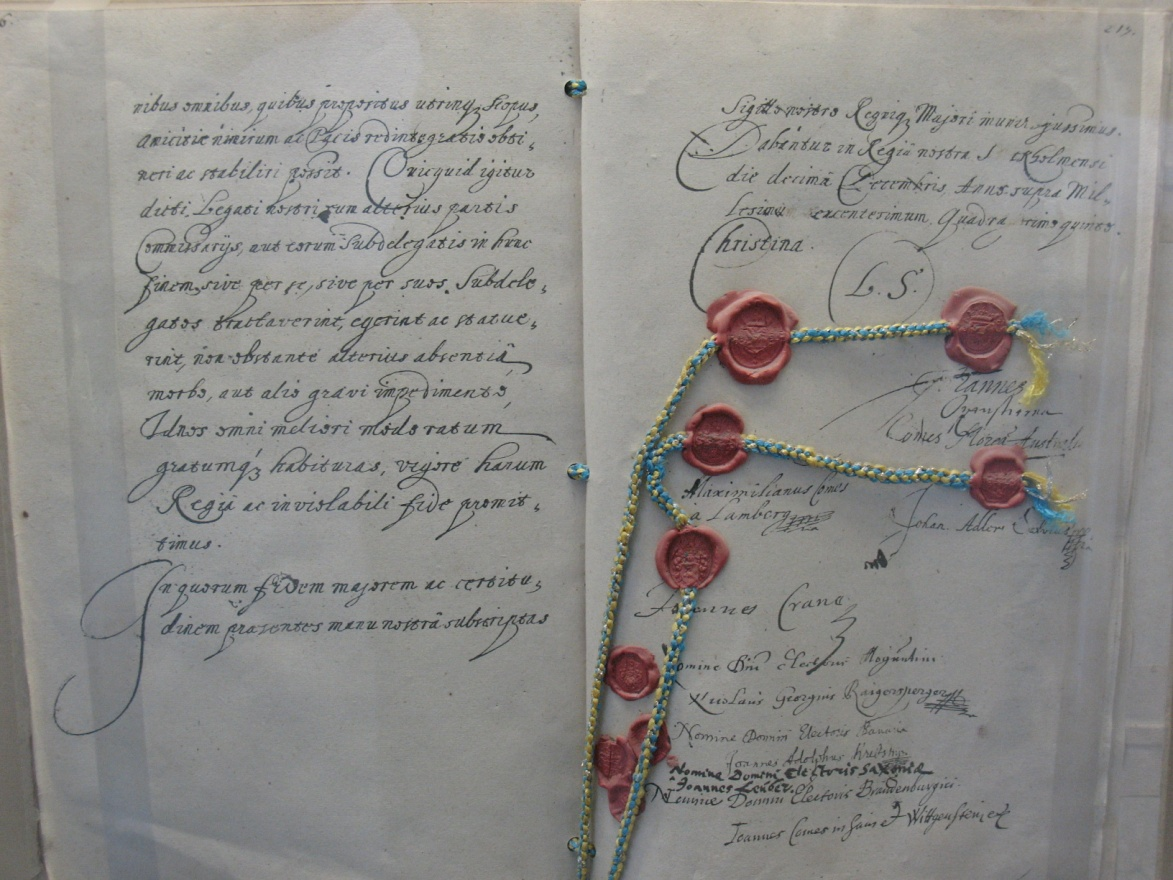 nibus omnibus, quibus propositus utrinq, scopus,
Amicitiæ nimirum ac Pacis redintegratio obti,
neri ac stabiliri possit. Quicquid igitur
dicti Legati nostri cum alterius partis
Commissarijs, aut eorum Subdelegatis in hunc
finem, sive per se, sive per suos Subdele,
gatos tractaverint, egerint ac statue,
rint, non obstante alterius absentiâ,
morbo, aut alio gravi impedimento,
Id nos omni meliori modo ratum
gratumq, habituras, vigore harum
Regiâ ac inviolabili fide promit,
timus.
In quorum fidem majorem ac certitu,
dinem præsentes manu nostrâ subscriptas
Sigillo nostro Regniq, Majori muniri jussimus.
Dabantur in Regiâ nostra holmensi
die decimâ Decembris, Anno supra Mil,
lesimu centesimum, Quadra simo quinto
Christina.
L. S.
Joannes
Oxenstierna
Comes
Maximilianus Comes
a Lamberg
Johan. Adler
Joannes Crane
Nomine Dni Electoris Moguntini
Nicolaus Georgius Raigersperger
Nomine Domini Electoris Bavariæ
Joannes Adolphus
Nomine Domini Electoris Saxoniæ
Joannes Leuber.
Nomine Domini Electoris Brandenburgici
Joannes Comes in Sain et Wittgenstein